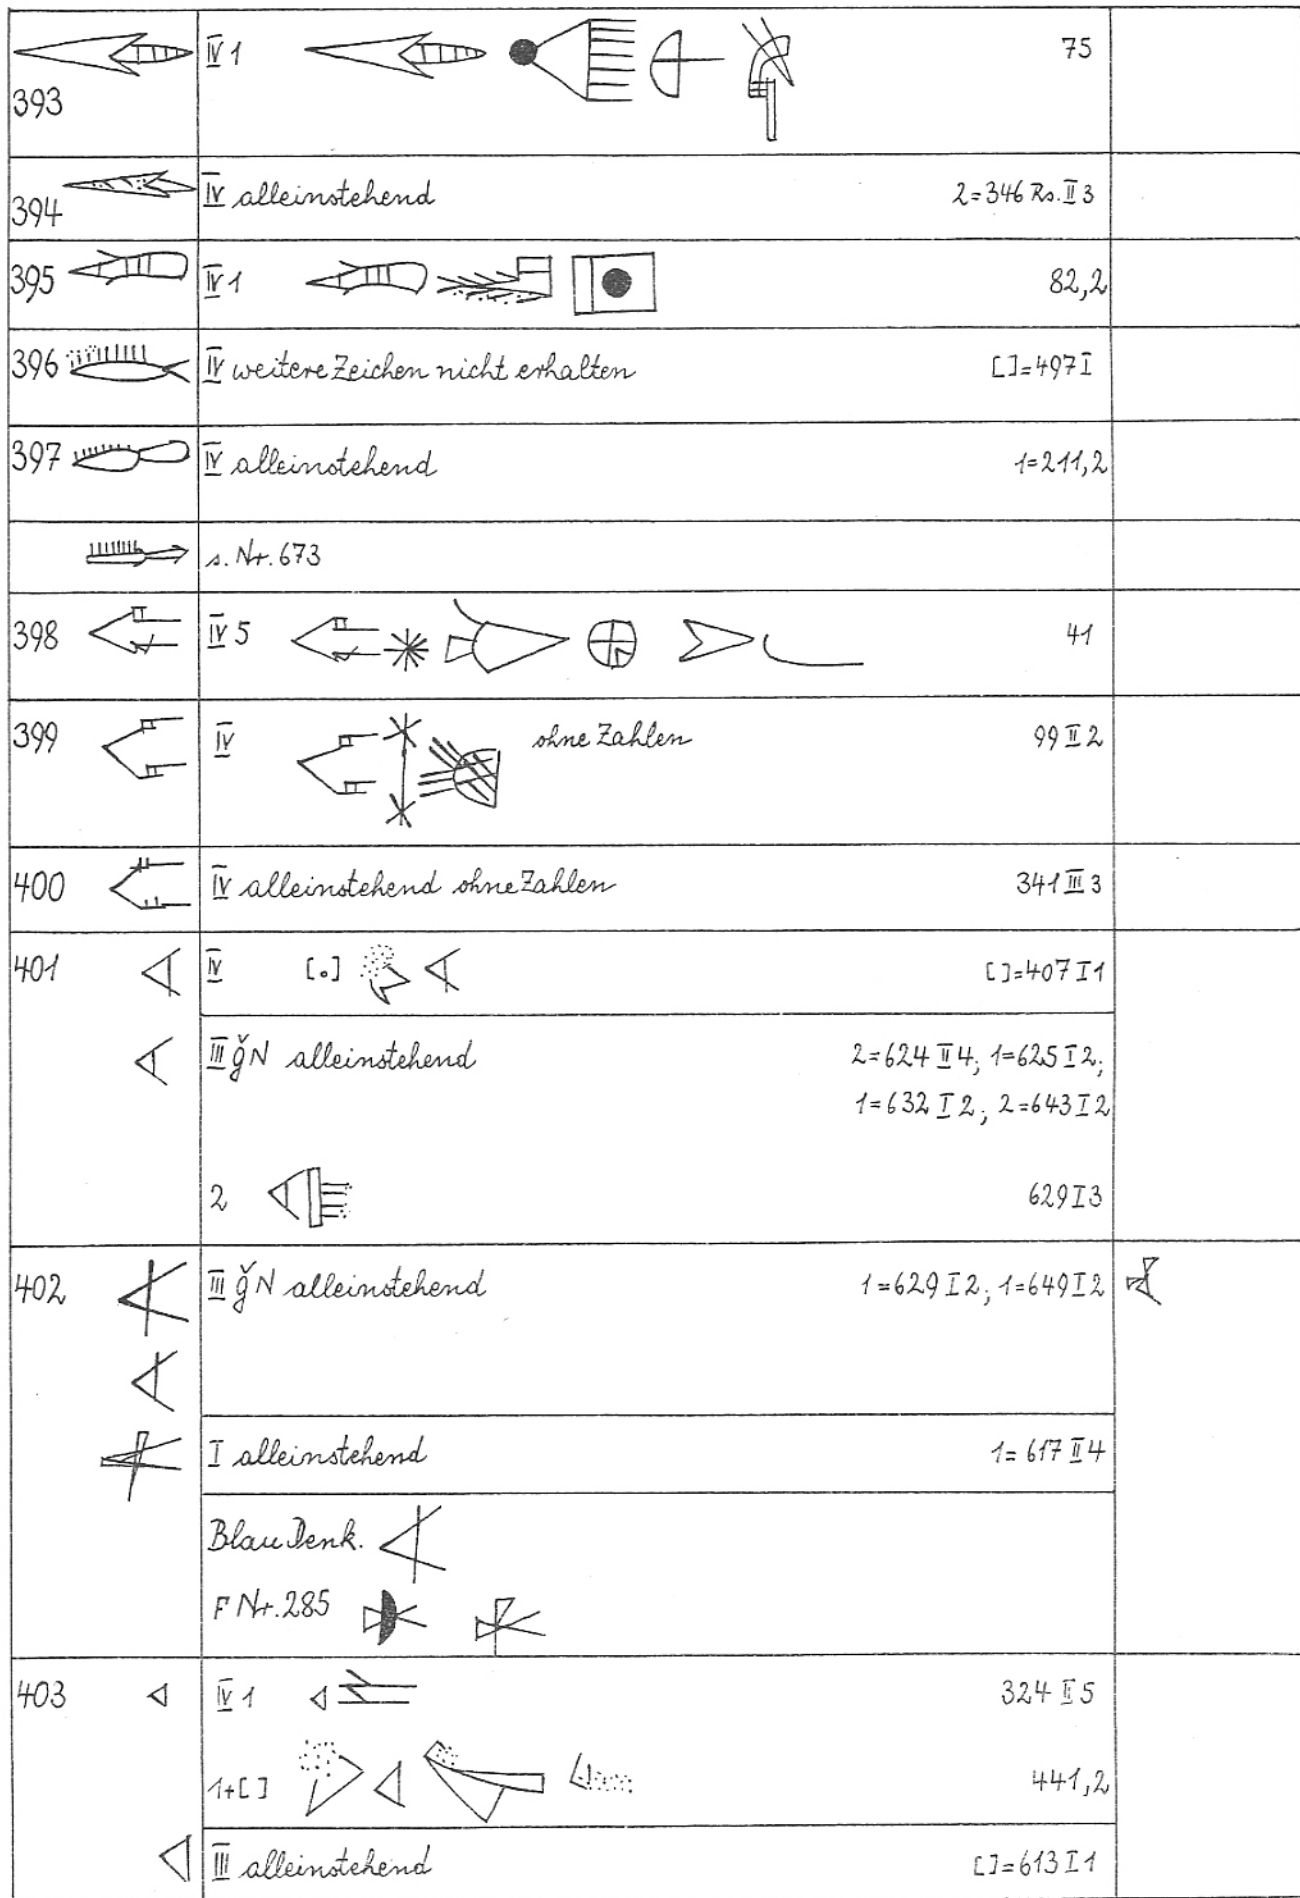 393 IV 1 75
394 IV alleinstehend 2=346 Rs. II 3
395 IV 1 82,2
396 IV weitere Zeichen nicht erhalten []=497 I
397 IV alleinstehend 1=211,2
s. Nr. 673
398 IV 5 41
399 IV ohne Zahlen 99 II 2
400 IV alleinstehend ohne Zahlen 341 III 3
401 IV [.] []=407 I 1
III ğN alleinstehend 2=624 II 4; 1=625 I 2;
1=632 I 2; 2=643 I 2
2 629 I 3
402 III ğN alleinstehend 1=629 I 2; 1=649 I 2
I alleinstehend 1=617 II 4
Blau Denk.
F Nr. 285
403 IV 1 324 II 5
1+[] 441,2
III alleinstehend []=613 I 1